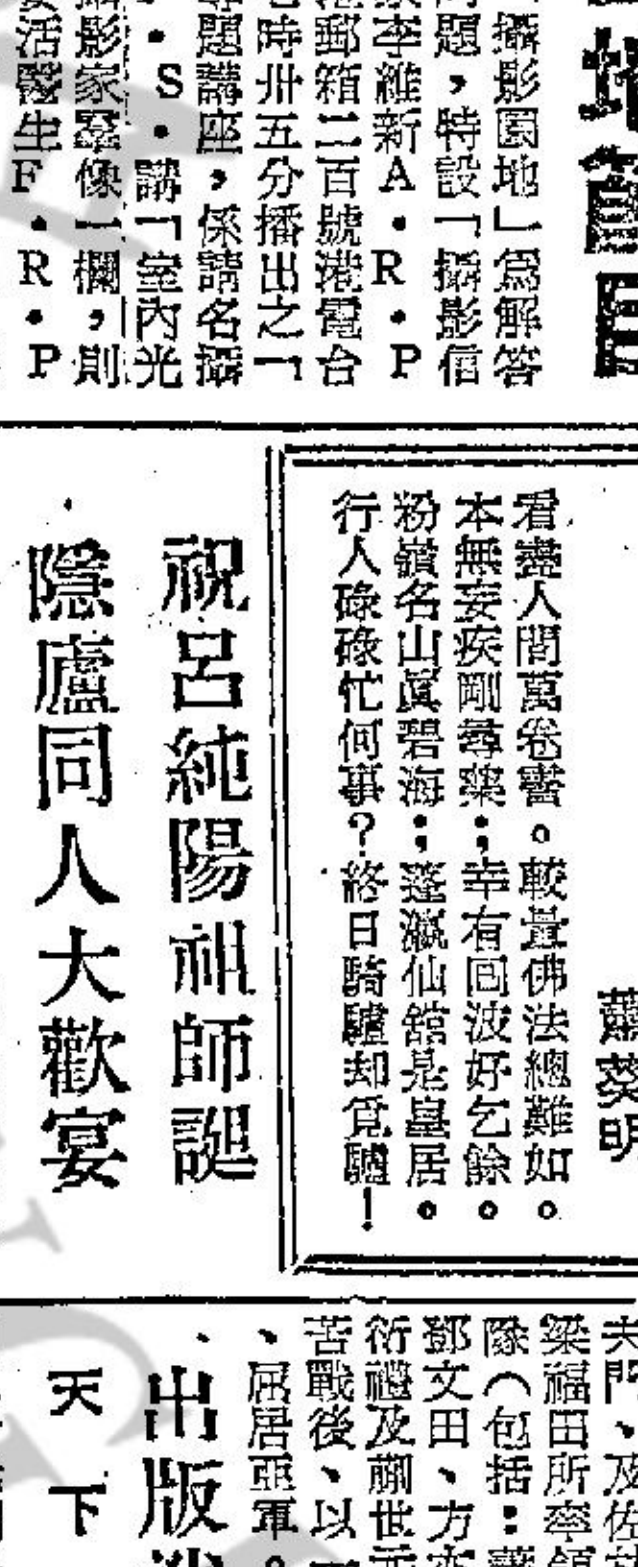 攝影園地」爲解答
問題，特設「攝影信
家李維新A・R・P
港郵箱二百號港電台
七時卅五分播出之「
專題講座，係請名攝
・S・講「室內光
攝影家羣像一欄，則
活醫生F・R・P
蕭葵明
看盡人間萬卷書。較量佛法總難如。
本無妄疾剛尋藥；幸有回波好乞餘。
粉嶺名山眞碧海；蓬瀛仙舘是皇居。
行人碌碌忙何事？終日騎驢却覓驢！
祝呂純陽祖師誕
隱廬同人大歡宴
夫門、及佐
梁福田所率領
隊（包括：
鄧文田、方
衍禮及蒯世
苦戰後、以
、屈居亞軍。
出版
天下